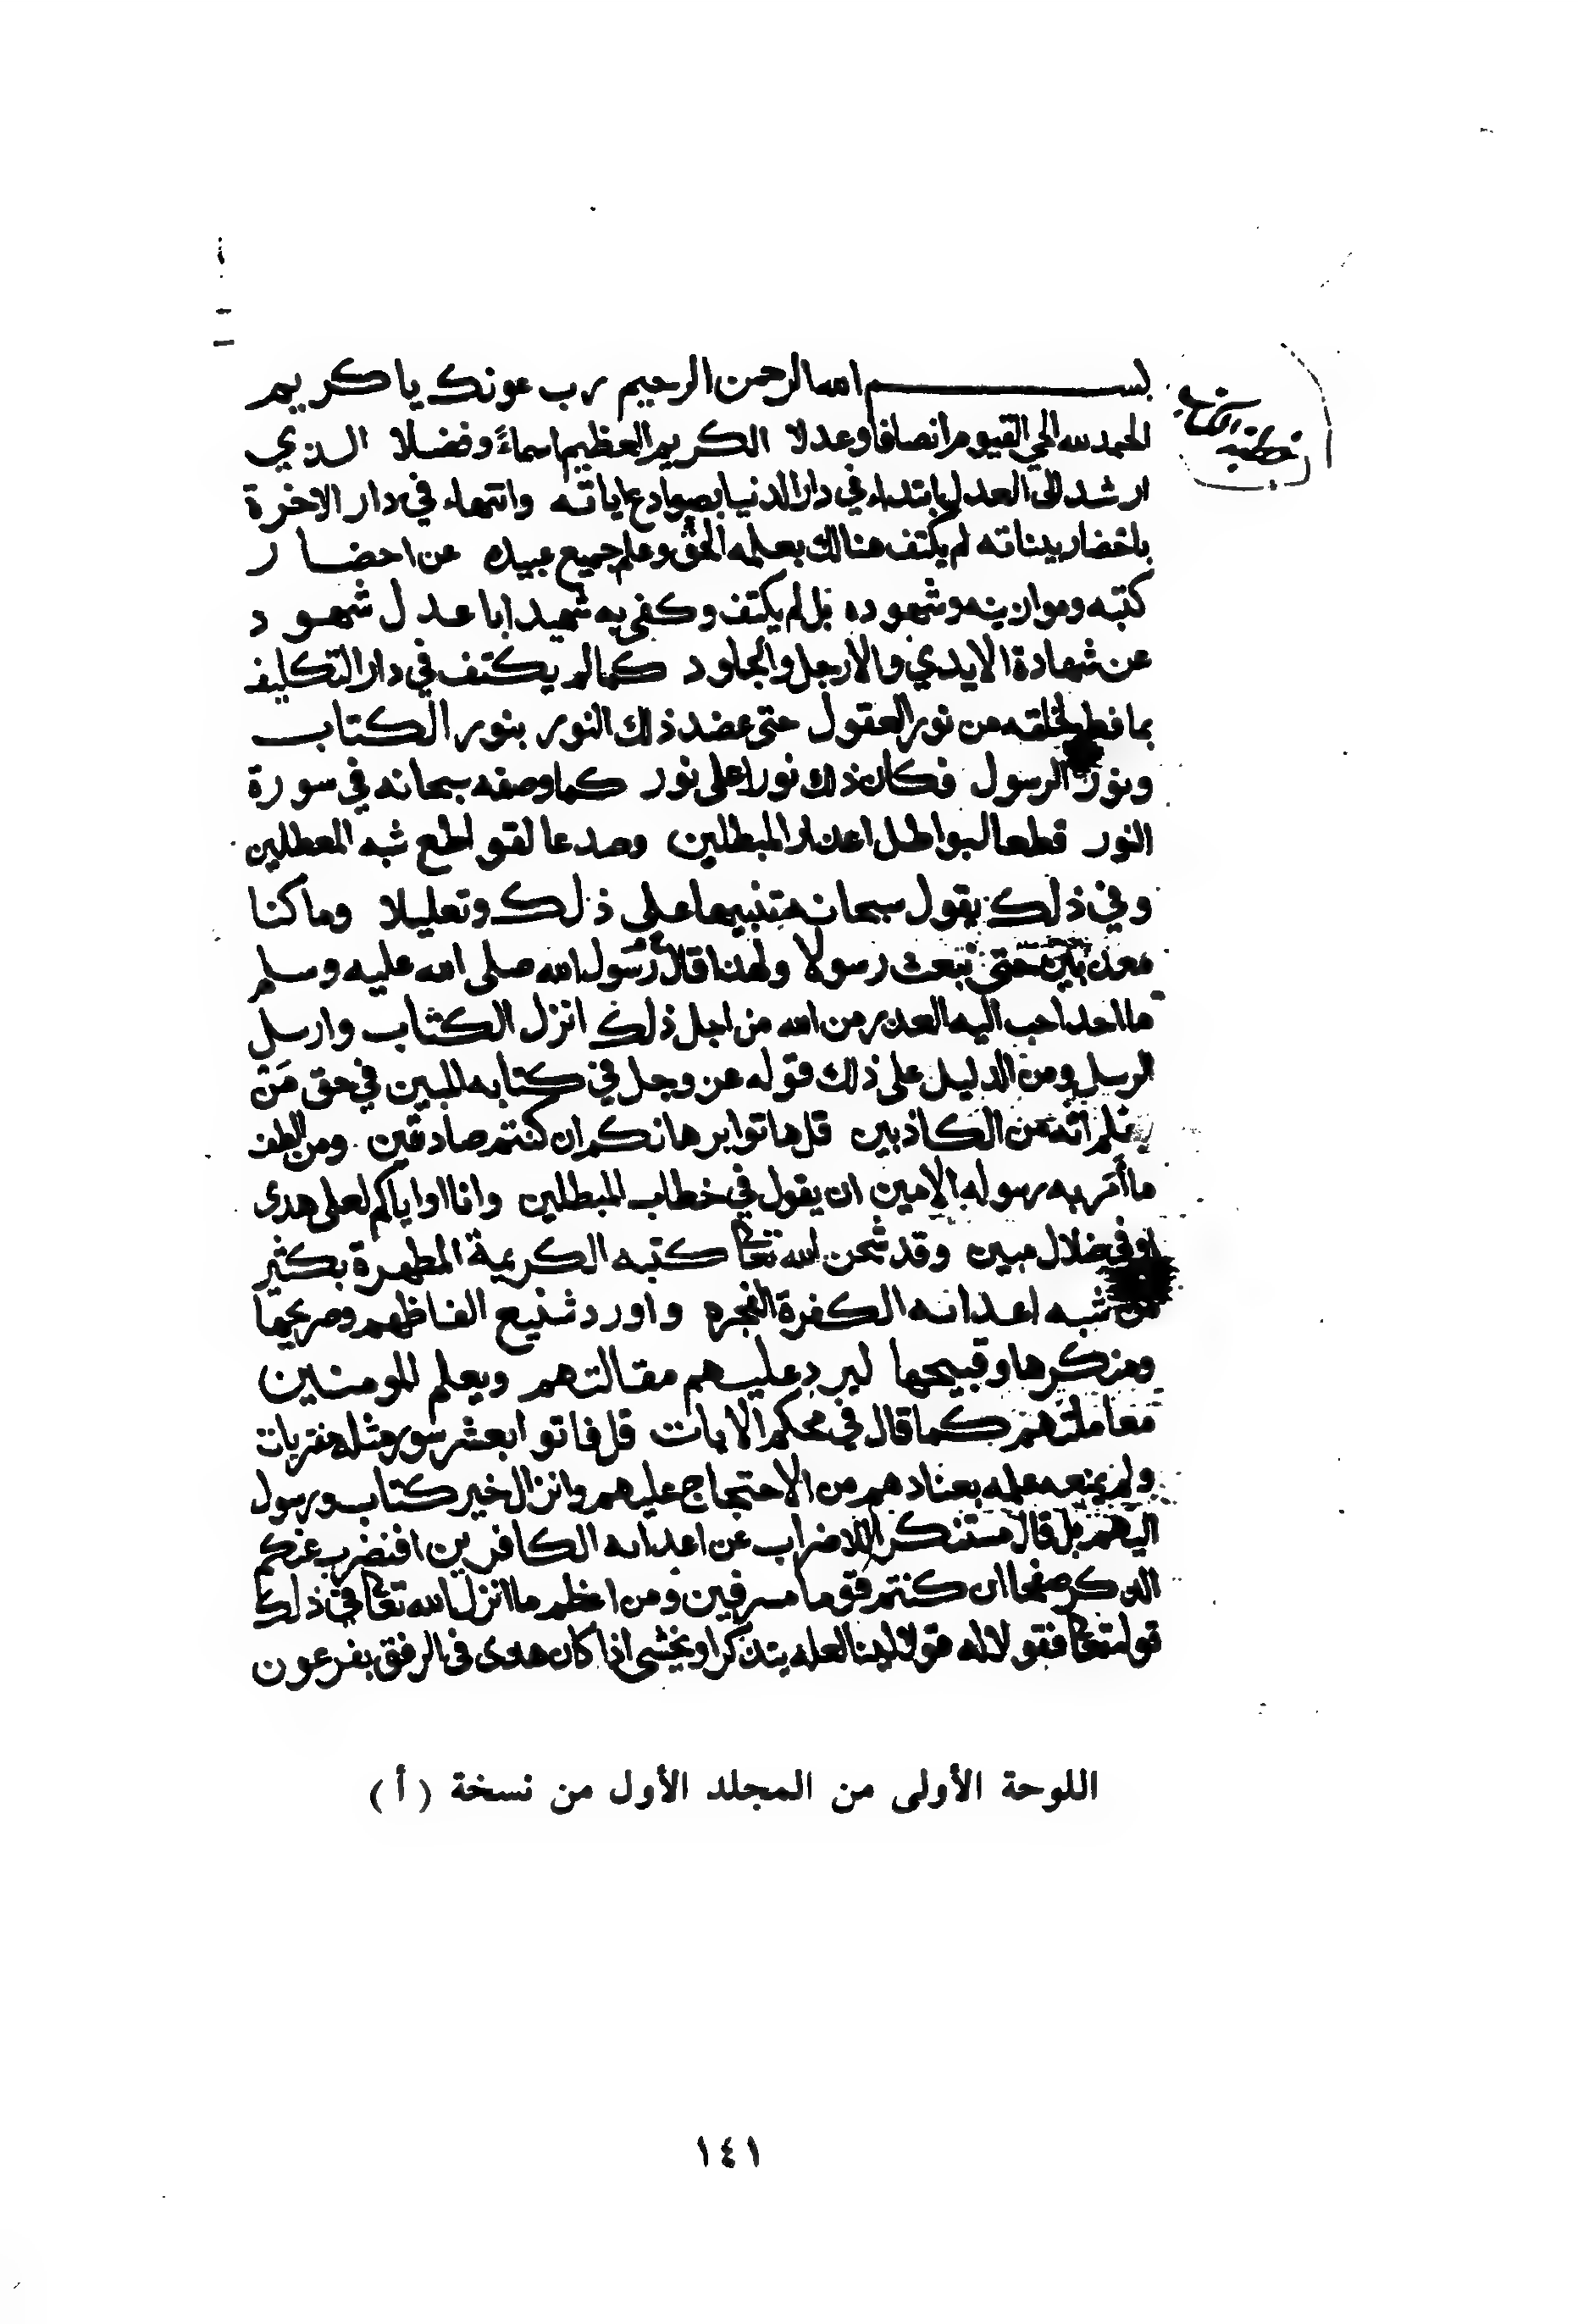 بسم الله الرحمن الرحيم رب عونك يا كريم
خطبة الكتاب
الحمد لله الحي القيوم انصافا وعدلا الكريم العظيم اسماءً وفضلا الذي
ارشد الى العدل ابتداء في دار الدنيا بصوادع اياته وانتهاء في دار الاخرة
باحضار بيناته لم يكتف هنالك بعلمه الحق وعلم جميع عبيده عن احضار
كتبه وموازينه وشهوده بل لم يكتف وكفى به شهيدا باعدل شهود
عن شهادة الايدي والارجل والجلود كما لم يكتف في دار التكليف
بما فطر لخلقه من نور العقول حتى عضد ذلك النور بنور الكتاب
ونور الرسول فكان ذلك نورا على نور كما وصفه سبحانه في سورة
النور قطعا لبواطل اعذار المبطلين وصدعا لقواطع شبه المعطلين
وفي ذلك يقول سبحانه تنبيها على ذلك وتعليلا وما كنا
معذبين حتى نبعث رسولا ولهذا قال رسول الله صلى الله عليه وسلم
ما احد احب اليه العذر من الله من اجل ذلك انزل الكتاب وارسل
الرسل ومن الدليل على ذلك قوله عز وجل في كتابه المبين في حق من
يعلم انه من الكاذبين قل هاتوا برهانكم ان كنتم صادقين ومن الطف
ما أمر به رسوله الامين ان يقول في خطاب المبطلين وانا او اياكم لعلى هدى
او في ضلال مبين وقد شحن الله تعالى كتبه الكريمة المطهرة بكثير
من شبه اعدائه الكفرة الفجره واورد شنيع الفاظهم وصريحها
ومنكرها وقبيحها ليرد عليهم مقالتهم ويعلم المومنين
معاملتهم كما قال في محكم الايات قل فاتوا بعشر سور مثله مفتريات
ولم يمنعه علمه بعنادهم من الاحتجاج عليهم وانزال خير كتاب ورسول
اليهم بل قال مستنكرا للاضراب عن اعدائه الكافرين افنضرب عنكم
الذكر صفحا ان كنتم قوما مسرفين ومن اعظم ما انزل الله تعالى في ذلك
قوله تعالى فقولا له قولا لينا لعله يتذكر او يخشى اذا كان هدى في الرفق بفرعون
اللوحة الأولى من المجلد الأول من نسخة (أ)
١٤١